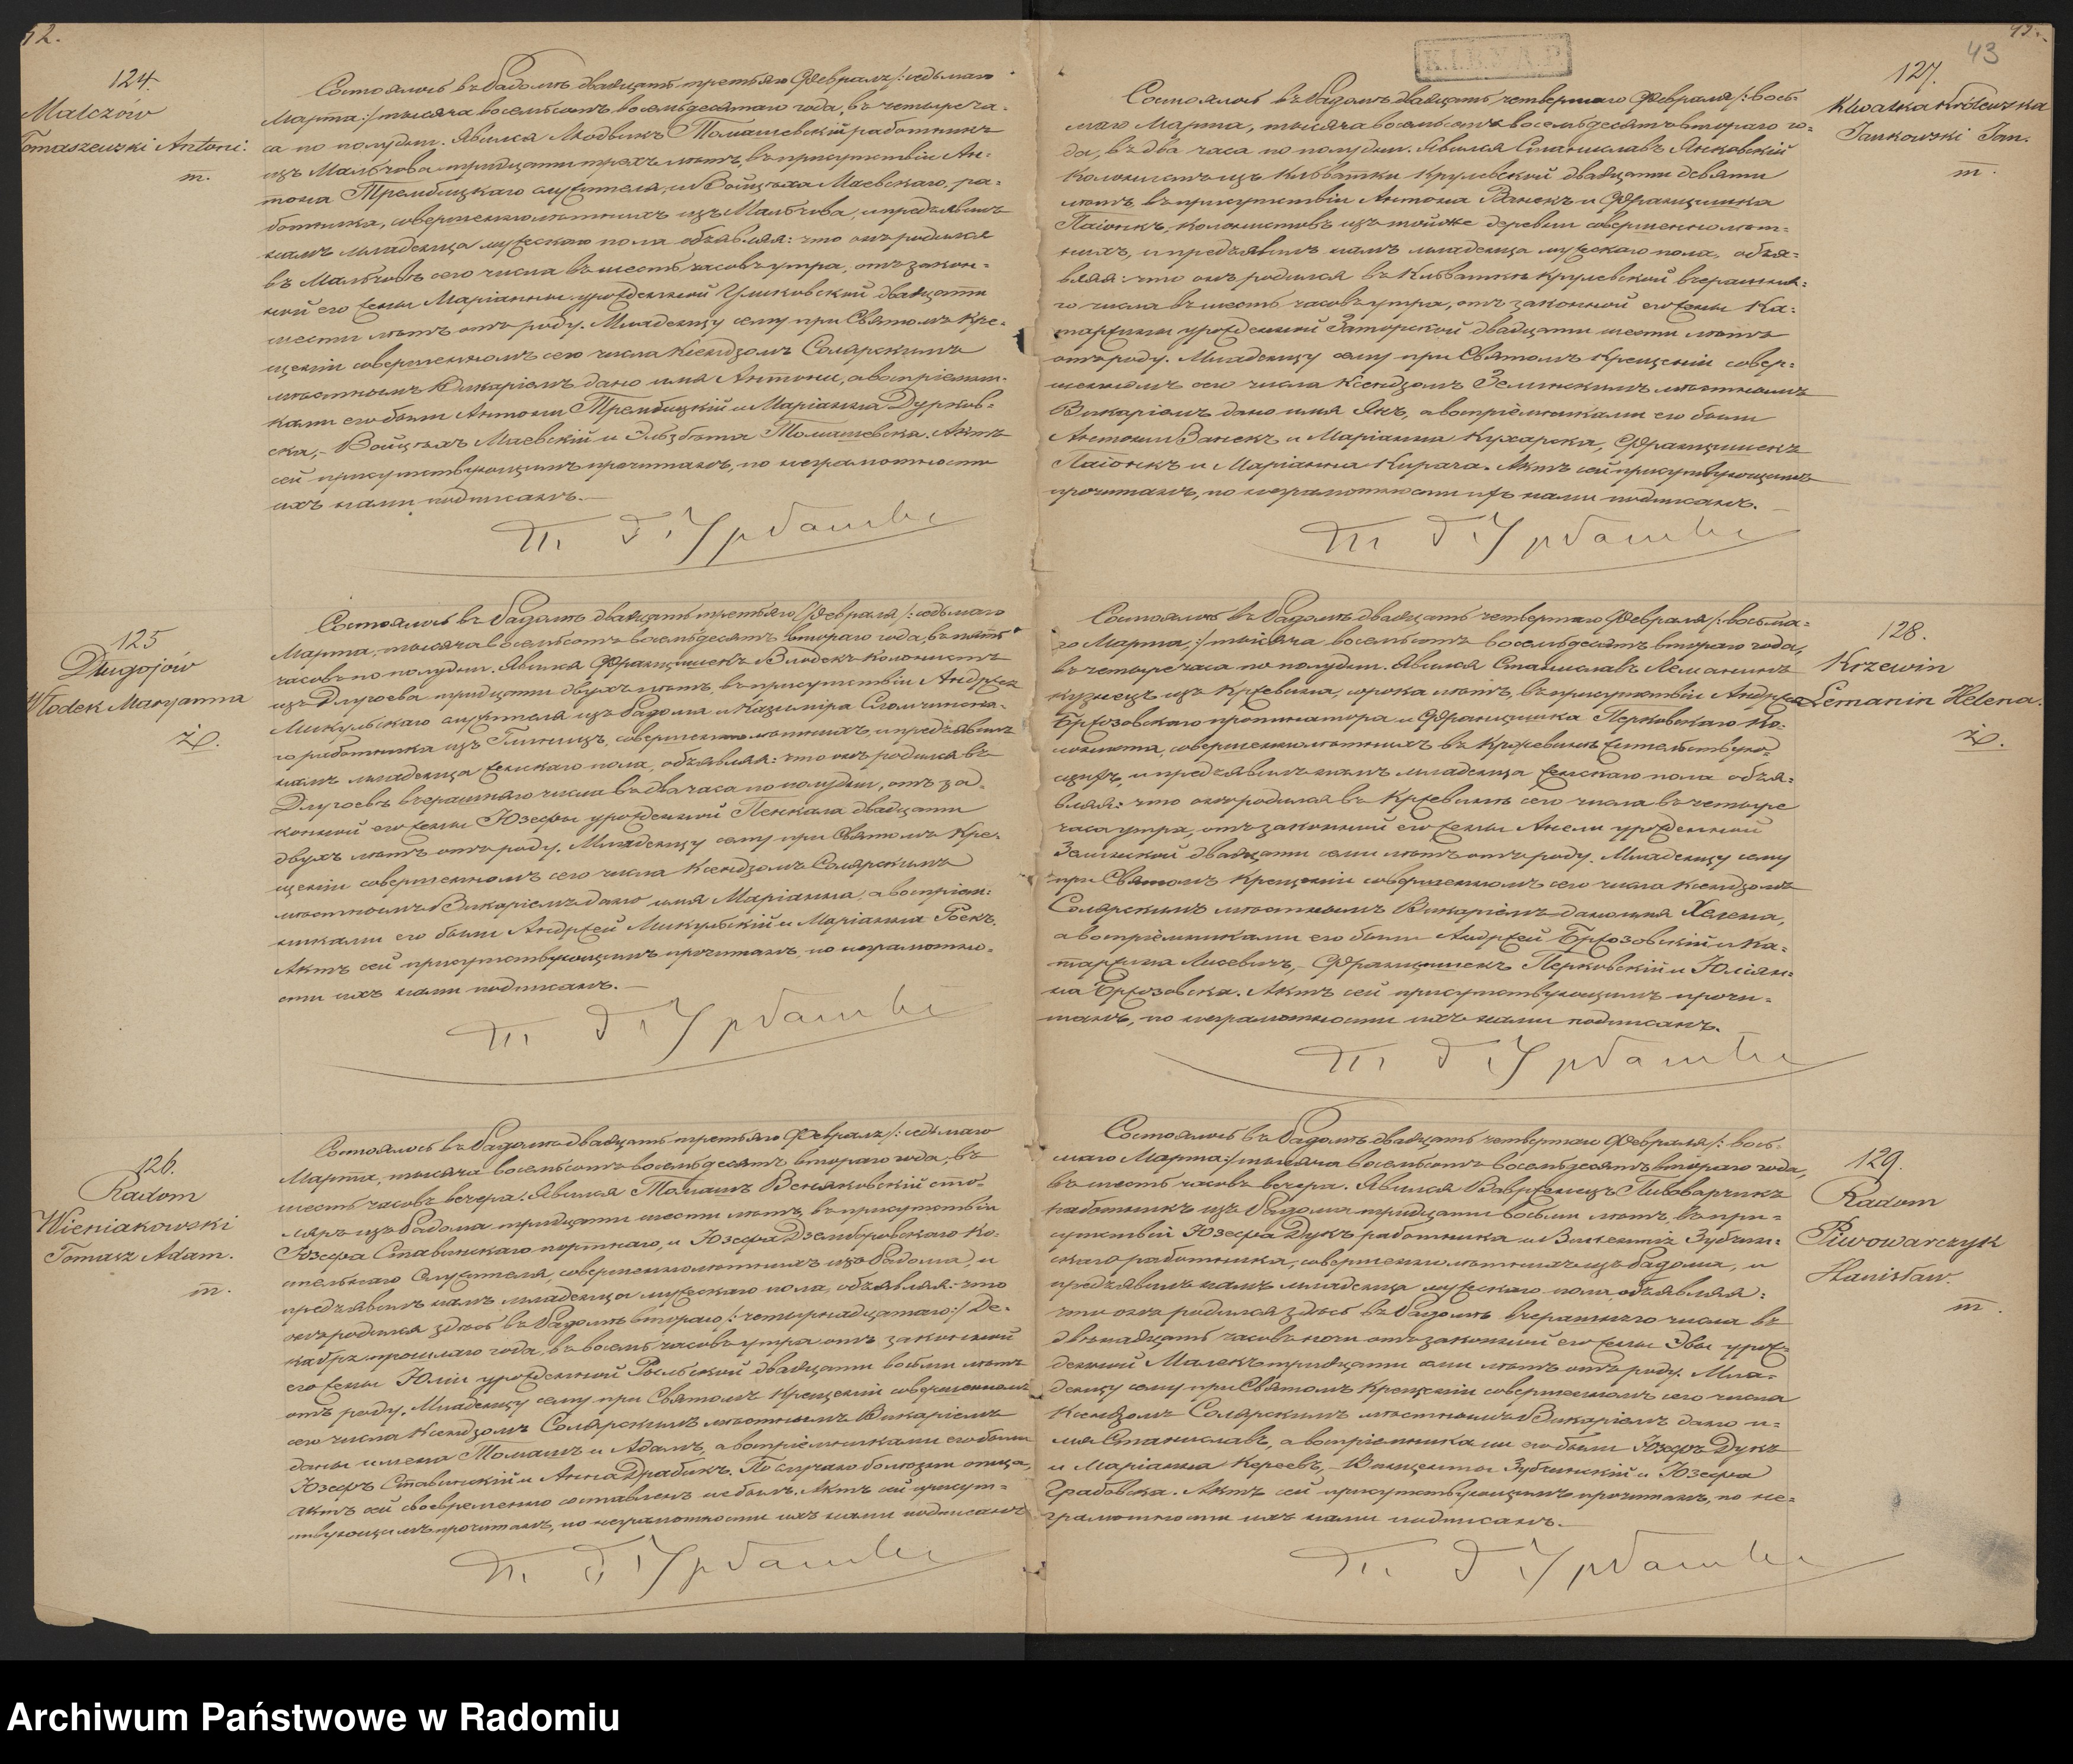 42.
124.
Malczów
Tomaszewski Antoni.
m.
Состоялось въ Радомѣ двадцать третьяго Февраля /: седьмаго
Марта :/ тысяча восемьсотъ восемьдесятаго года, въ четыре ча-
са по полудни. Явился Людвикъ Томашевскій работникъ
изъ Мальчова тридцати трехъ лѣтъ, въ присутствіи Ан-
тона Трембицкаго служителя, и Войцѣха Маевскаго, ра-
ботника, совершеннолѣтнихъ изъ Мальчова, и предъявилъ
намъ младенца мужескаго пола объявляя: что онъ родился
въ Мальчовѣ сего числа въ шесть часовъ утра, отъ закон-
ной его жены Маріанны урожденной двадцати
шести лѣтъ отъ роду. Младенцу сему при Святомъ Кре-
щеніи совершенномъ сего числа Ксендзомъ Солярскимъ
мѣстнымъ Викаріемъ дано имя Антони, а воспріемни-
ками его были Антони Трембицкій и Маріанна Дурков-
ска, – Войцѣхъ Маевскій и Эльзбета Томашевска. Актъ
сей присутствующимъ прочитанъ, по неграмотности
ихъ нами подписанъ. —
125
Długojów
Włodek Maryanna
ż.
Состоялось въ Радомѣ двадцать третьяго Февраля /: седьмаго
Марта, тысяча восемьсотъ восемьдесятъ втораго года, въ пять
часовъ по полудни. Явился Францишекъ Влодекъ колонистъ
изъ Длугоева тридцати двухъ лѣтъ, въ присутствіи Андрея
Микульскаго служителя изъ Радома и Казиміра
го работника изъ совершеннолѣтнихъ, и предъявилъ
намъ младенца женскаго пола, объявляя: что онъ родился въ
Длугоевѣ вчерашняго числа въ два часа по полудни, отъ за-
конной его жены Юзефы урожденной Пенкала двадцати
двухъ лѣтъ отъ роду. Младенцу сему при Святомъ Кре-
щеніи совершенномъ сего числа Ксендзомъ Солярскимъ
мѣстнымъ Викаріемъ дано имя Маріанна, а воспріем-
никами его были Андржей Микульскій и Маріанна
Актъ сей присутствующимъ прочитанъ, по неграмотно-
сти ихъ нами подписанъ. —
126.
Radom
Wieniakowski
Tomasz Adam.
m.
Состоялось въ Радомѣ двадцать третьяго Февраля /: седьмаго
Марта, тысяча восемьсотъ восемьдесятъ втораго года, въ
шесть часовъ вечера. Явился Томашъ Веняковскій сто-
ляръ изъ Радома тридцати шести лѣтъ, въ присутствіи
Юзефа Ставинскаго портнаго, и Юзефа
служителя, совершеннолѣтнихъ изъ Радома, и
предъявилъ намъ младенца мужескаго пола, объявляя: что
онъ родился здѣсь въ Радомѣ втораго /: четырнадцатаго :/ Де-
кабря прошлаго года, въ восемь часовъ утра отъ законной
его жены Юліи урожденной двадцати восьми лѣтъ
отъ роду. Младенцу сему при Святомъ Крещеніи совершенномъ
сего числа Ксендзомъ Солярскимъ мѣстнымъ Викаріемъ
даны имена Томашъ и Адамъ, а воспріемниками его были
Юзефъ Ставинскій и Анна Драбикъ. По случаю болѣзни отца,
актъ сей своевременно составленъ не былъ. Актъ сей присут-
ствующимъ прочитанъ, по неграмотности ихъ нами подписанъ
43
127.
Kwatka Królewska
Jankowski Jan.
m.
Состоялось въ Радомѣ двадцать четвертаго Февраля /: вось-
маго Марта, тысяча восемьсотъ восемьдесятъ втораго го-
да, въ два часа по полудни. Явился Станиславъ Янковскій
колонистъ изъ Кльватки Крулевской двадцати девяти
лѣтъ, въ присутствіи Антона Ванекъ и Францишка
Паіонкъ, колонистовъ изъ тойже деревни совершеннолѣт-
нихъ, и предъявилъ намъ младенца мужескаго пола, объя-
вляя: что онъ родился въ Кльваткѣ Крулевской вчерашня-
го числа въ шесть часовъ утра, отъ законной его жены Ка-
таржины урожденной Заторской двадцати шести лѣтъ
отъ роду. Младенцу сему при Святомъ Крещеніи совер-
шенномъ сего числа Ксендзомъ Землинскимъ мѣстнымъ
Викаріемъ дано имя Янъ, а воспріемниками его были
Антони Ванекъ и Маріанна Кухарска, Францишекъ
Паіонкъ и Маріанна Кирага. Актъ сей присутствующимъ
прочитанъ, по неграмотности ихъ нами подписанъ.
128.
Krzewin
Lemanin Helena.
ż.
Состоялось въ Радомѣ двадцать четвертаго Февраля /: восьма-
го Марта, :/ тысяча восемьсотъ восемьдесятъ втораго года,
въ четыре часа по полудни. Явился Станиславъ Леманинъ
кузнецъ изъ Кржевина, сорока лѣтъ, въ присутствіи Андржея
Бржозовскаго пропинатора и Францишка Перковскаго ко-
лониста, совершеннолѣтнихъ въ Кржевинѣ жительствую-
щихъ, и предъявилъ намъ младенца женскаго пола объя-
вляя: что онъ родился въ Кржевинѣ сего числа въ четыре
часа утра, отъ законной его жены Анели урожденной
двадцати семи лѣтъ отъ роду. Младенцу сему
при Святомъ Крещеніи совершенномъ сего числа Ксендзомъ
Солярскимъ мѣстнымъ Викаріемъ дано имя Хелена,
а воспріемниками его были Андржей Бржозовскій и Ка-
таржина Лисевичъ, – Францишекъ Перковскій и Юліан-
на Бржозовска. Актъ сей присутствующимъ прочи-
танъ, по неграмотности ихъ нами подписанъ.
129.
Radom
Piwowarczyk
Stanisław.
m.
Состоялось въ Радомѣ двадцать четвертаго Февраля /: вось-
маго Марта :/ тысяча восемьсотъ восемьдесятъ втораго года,
въ шесть часовъ вечера. Явился Вавржинецъ Пивоварчикъ
работникъ изъ Радома тридцати восьми лѣтъ, въ при-
сутствіи Юзефа Дукъ работника и Викентія Зубчин-
скаго работника, совершеннолѣтнихъ изъ Радома, и
предъявилъ намъ младенца мужескаго пола, объявляя:
что онъ родился здѣсь въ Радомѣ вчерашняго числа въ
двѣнадцать часовъ ночи отъ законной его жены Эвы урож-
денной Малекъ тридцати семи лѣтъ отъ роду. Мла-
денцу сему при Святомъ Крещеніи совершенномъ сего числа
Ксендзомъ Солярскимъ мѣстнымъ Викаріемъ дано и-
мя Станиславъ, а воспріемниками его были Юзефъ Дукъ
и Маріанна Кереевъ, – Винценты Зубчинскій и Юзефа
Грабовска. Актъ сей присутствующимъ прочитанъ, по не-
грамотности ихъ нами подписанъ. —
Archiwum Państwowe w Radomiu